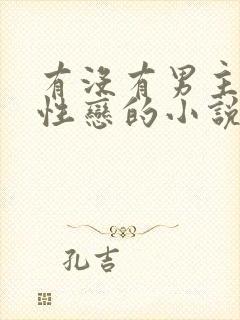 有没有男主
性戀的小說
孔吉